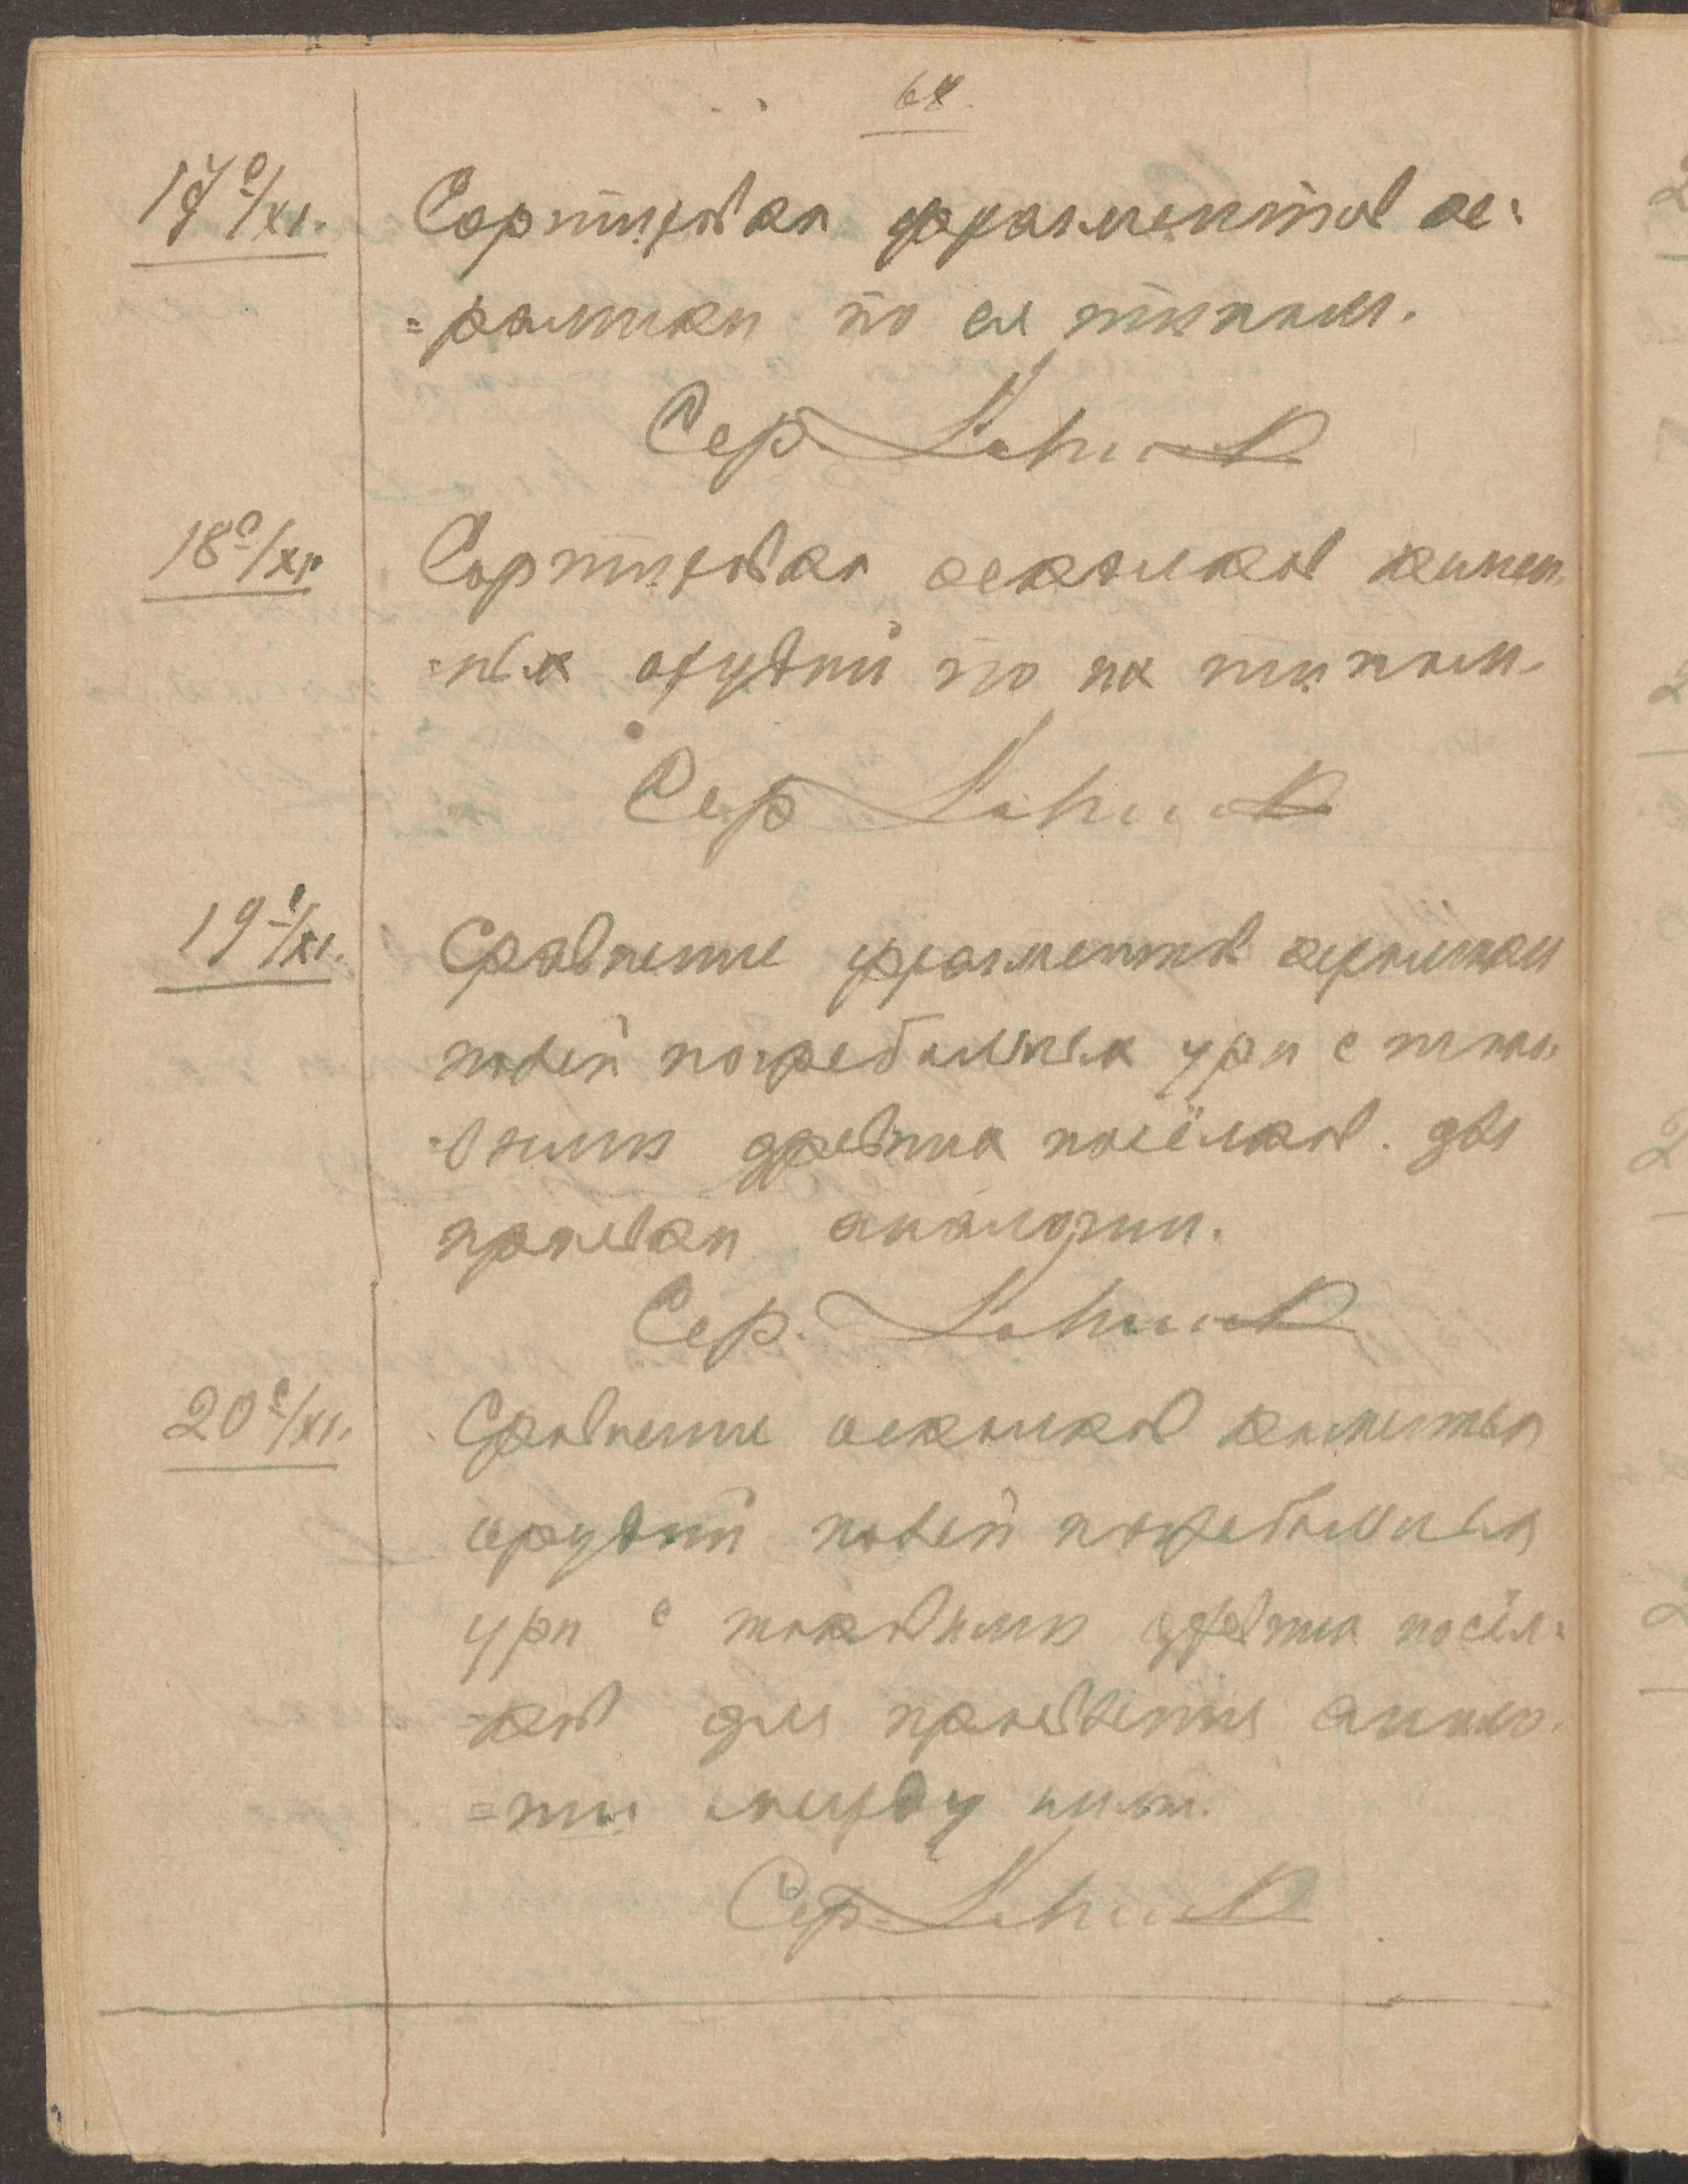 68.
17 е/XI. Сортировка фрагментов ке=
=рамики по ея типам.
Сер
18 е/XI. Сортировка осколков камен=
=ных орудий по их типам.
Сер
19 е/XI. Сравнение фрагментов керамики
полей погребальных урн с тако=
=выми древних посёлков. для
аналогии.
Сер.
20 е/XI. Сравнение осколков каменных
орудий полей погребальных
урн с таковыми древних посёл=
=ков для проведения анало=
=гии между ними.
Сер.